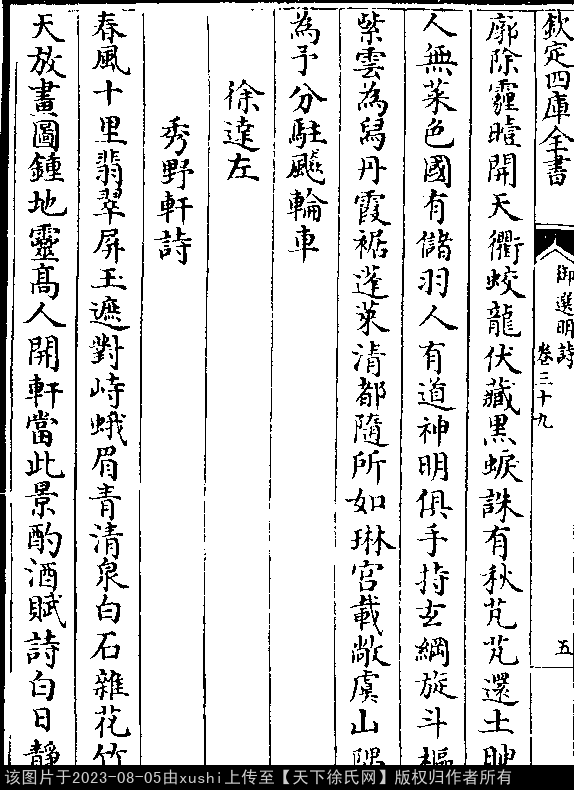 欽定四庫全書
御選明詩
卷三十九
五
廓除霾曀開天衢蛟龍伏藏黑蜧誅有秋芃芃還土
人無菜色國有儲羽人有道神明俱手持玄綱旋斗樞
紫雲為舄丹霞裾蓬萊清都隨所如琳宮載敞虞山
為予分駐飈輪車
徐達左
秀野軒詩
春風十里翡翠屏玉遮對峙蛾眉青清泉白石雜花竹
天放畫圖鍾地靈高人開軒當此景酌酒賦詩白日靜
该图片于2023-08-05由xushi上传至【天下徐氏网】版权归作者所有